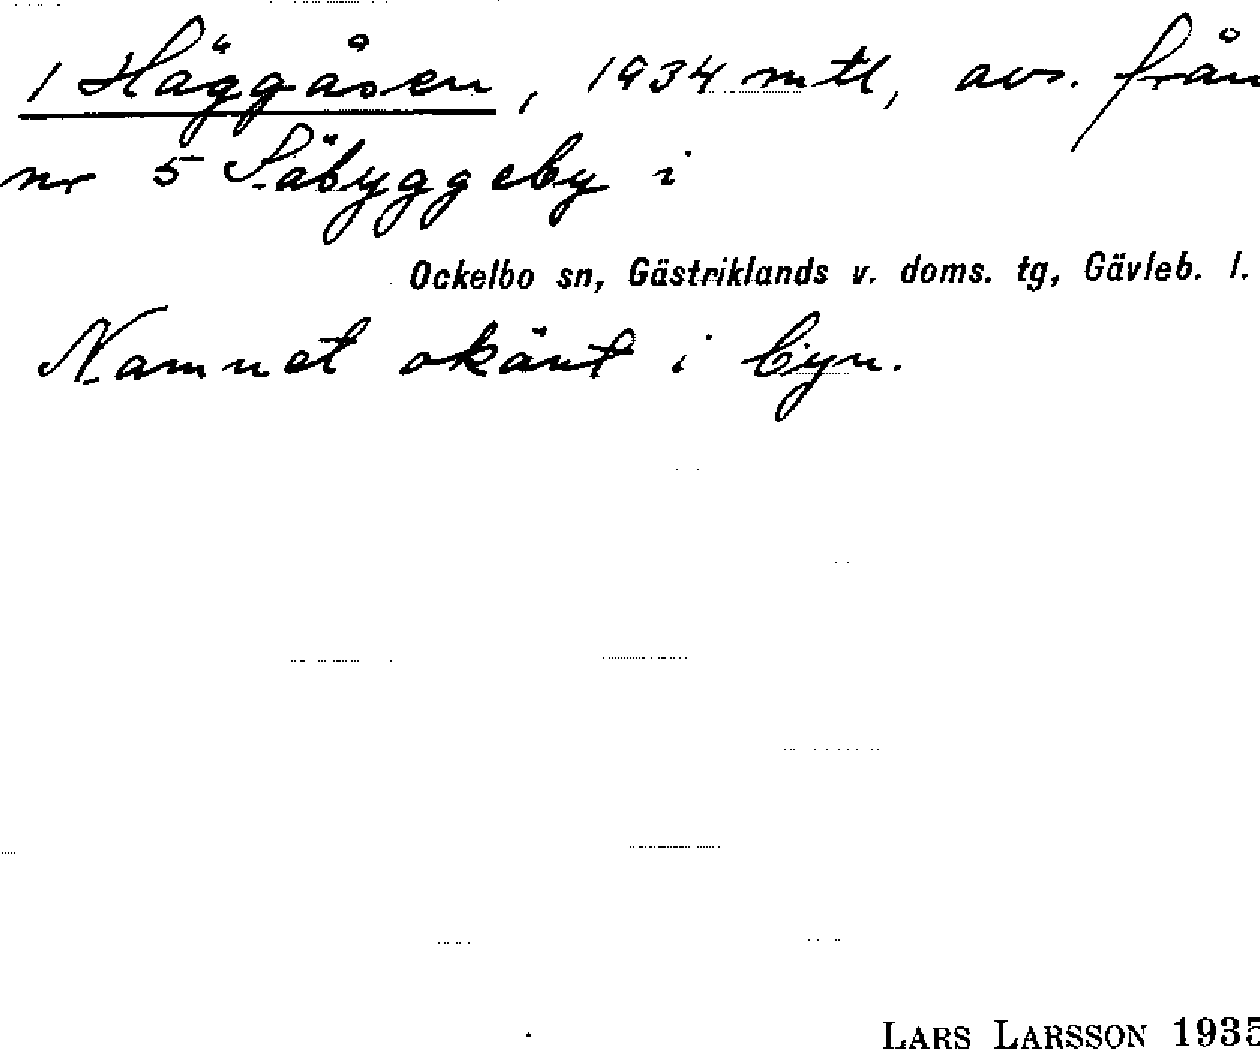 1 Häggåsen, 1934 mtl, avs. från
nr 5 Säbyggeby i
Ockelbo sn, Gästriklands v. doms. tg, Gävleb. l.
Namnet okänt i byn.
LARS LARSSON 1935